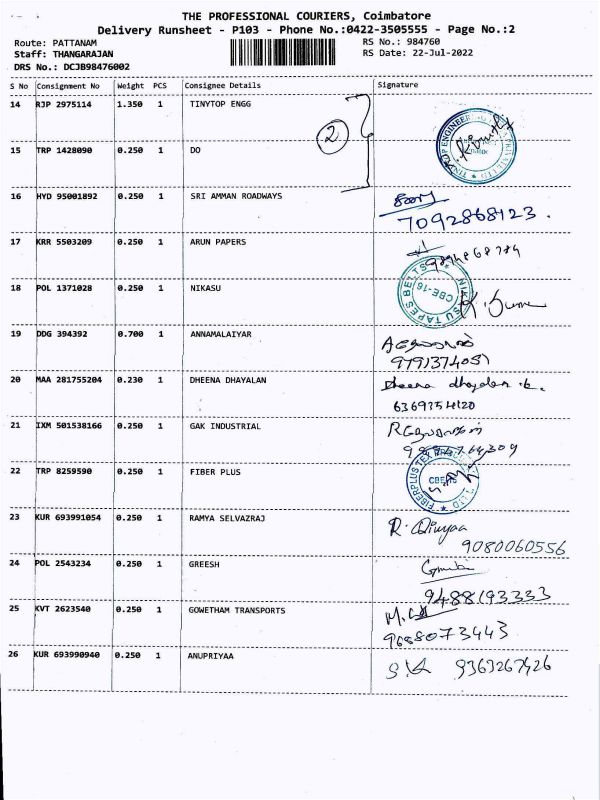 THE PROFESSIONAL COURIERS, Coimbatore
Delivery Runsheet - P103 - Phone No.:0422-3505555 - Page No.:2
Route: PATTANAM RS No.: 984760
Staff: THANGARAJAN RS Date: 22-Jul-2022
DRS No.: DCJB98476002
S No Consignment No Weight PCS Consignee Details Signature
14 RJP 2975114 1.350 1 TINYTOP ENGG
2
15 TRP 1428090 0.250 1 DO
16 HYD 95001892 0.250 1 SRI AMMAN ROADWAYS
7092868123.
17 KRR 5503209 0.250 1 ARUN PAPERS
9894868784
18 POL 1371028 0.250 1 NIKASU
NIKASU TAPES BELTS
CBE-16
19 DDG 394392 0.700 1 ANNAMALAIYAR
9791374051
20 MAA 281755204 0.230 1 DHEENA DHAYALAN Dheena dhayalan .k.
6369754120
21 IXM 501538166 0.250 1 GAK INDUSTRIAL
22 TRP 8259590 0.250 1 FIBER PLUS
FIBERPLUS TEX
23 KUR 693991054 0.250 1 RAMYA SELVAZRAJ R. Divyaa
9080060556
24 POL 2543234 0.250 1 GREESH
9488193333
25 KVT 2623540 0.250 1 GOWETHAM TRANSPORTS
9688073443
26 KUR 693990940 0.250 1 ANUPRIYAA 9363267426